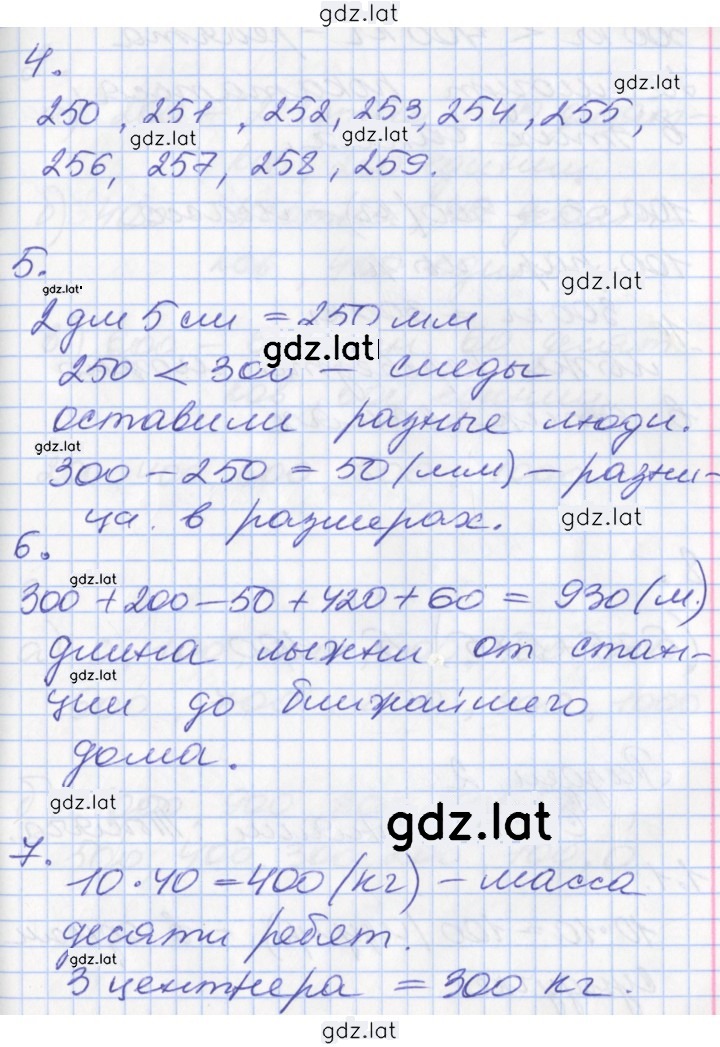 gdz.lat
4.
gdz.lat
250, 251, 252, 253, 254, 255,
gdz.lat gdz.lat
256, 257, 258, 259.
5.
gdz.lat
gdz.lat
2 дм 5 см = 250 мм
gdz.lat
250 < 300 – следы
оставили разные люди.
gdz.lat
300 – 250 = 50 (мм) – разни-
ца. в размерах.
gdz.lat
6.
gdz.lat
300 + 200 – 50 + 420 + 60 = 930 (м.)
длина лыжни от стан-
gdz.lat
ции до ближайшего
дома.
gdz.lat
gdz.lat
7.
10 · 40 = 400 (кг) – масса
десяти ребят.
gdz.lat
3 центнера = 300 кг.
gdz.lat